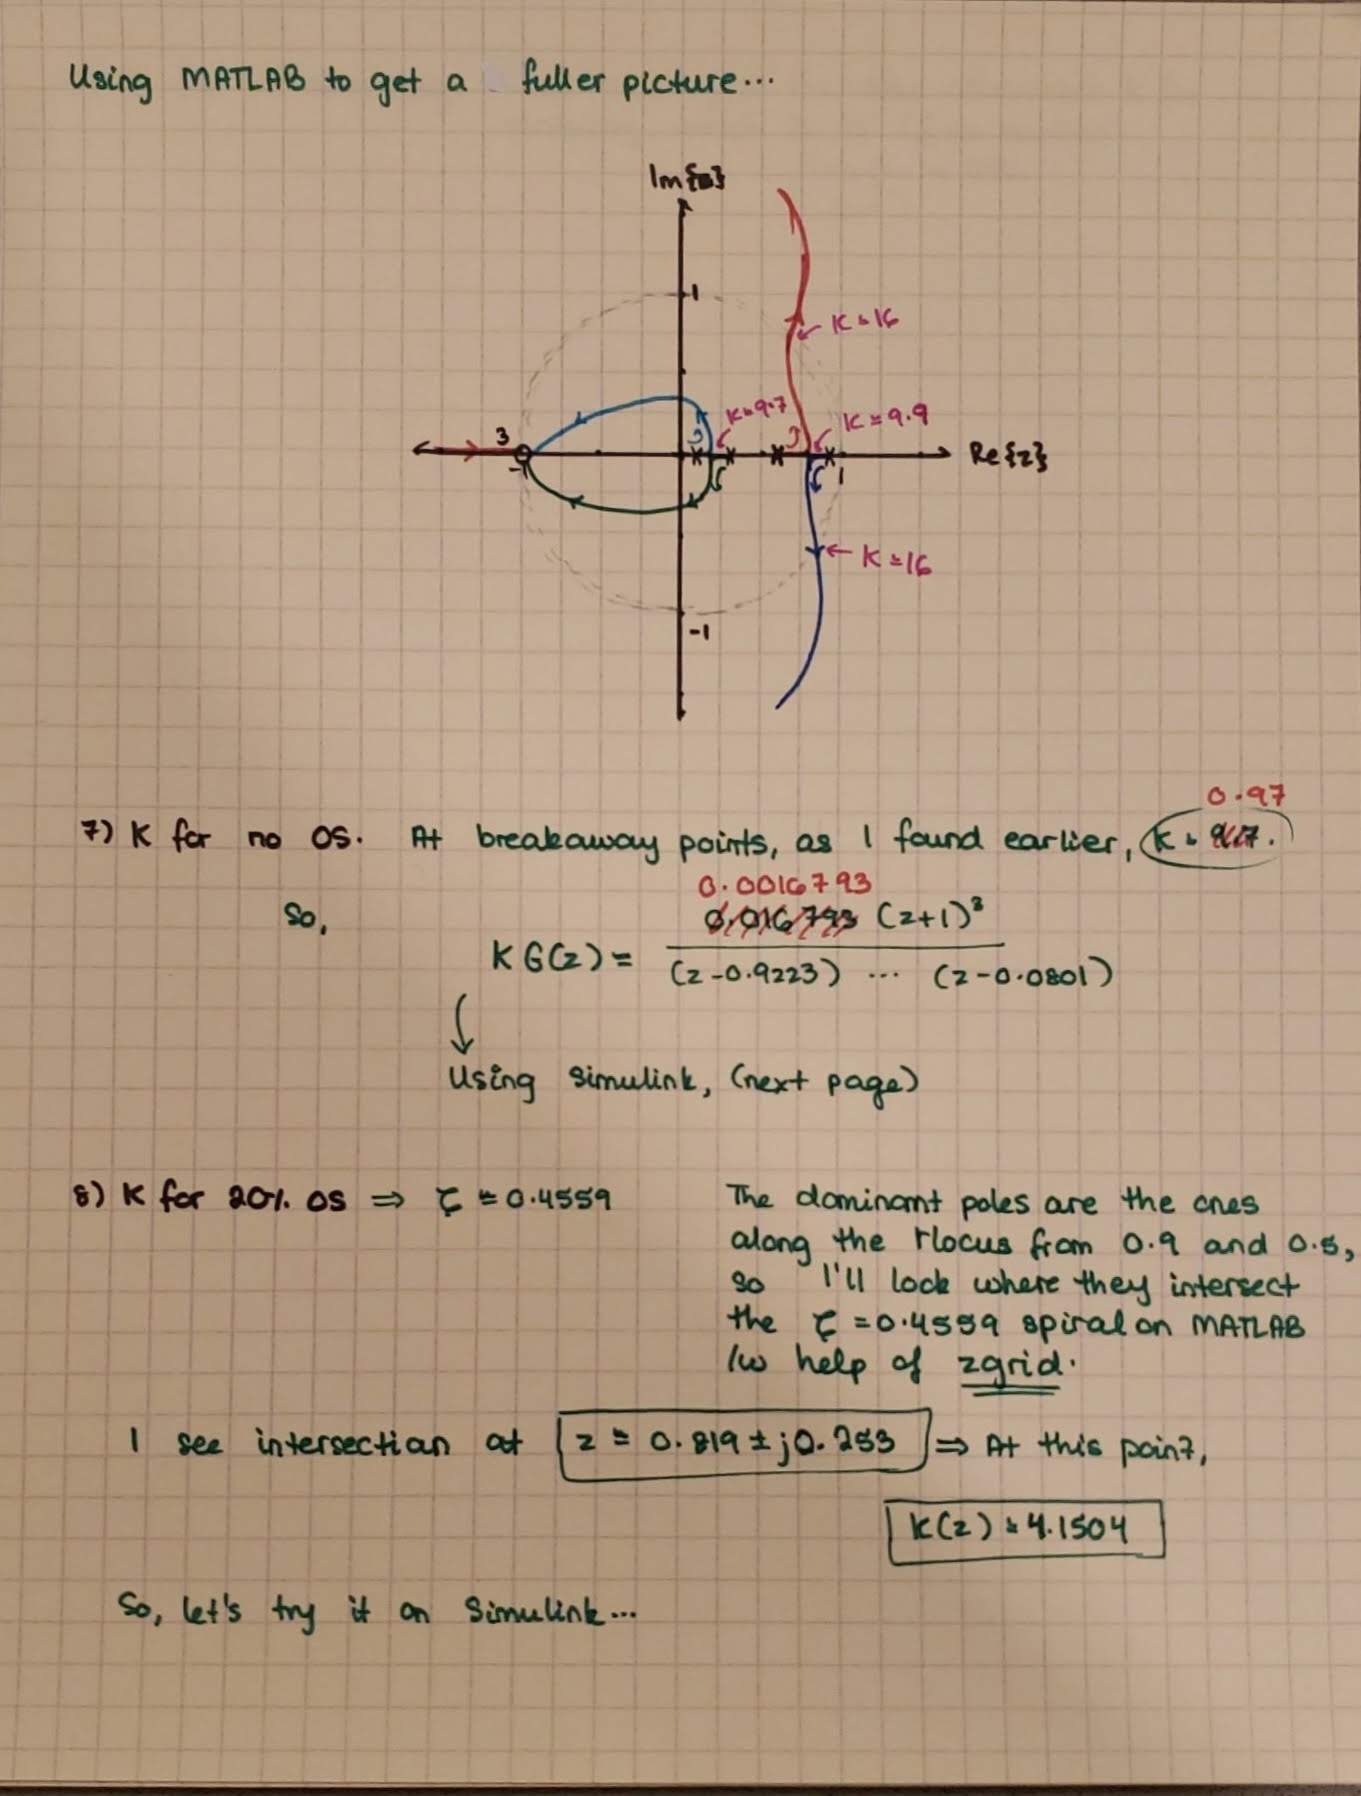 Using MATLAB to get a fuller picture...
Im{z}
1
K ≈ 16
K ≈ 9.7
K ≈ 9.9
3
-1
1
Re{z}
K ≈ 16
-1
0.97
7) K for no OS. At breakaway points, as I found earlier, K ≈
0.0016793
So,
0.016793 (z+1)³
KG(z) =
(z-0.9223) ... (z-0.0801)
Using Simulink, (next page)
8) K for 20% OS ⇒ ζ ≈ 0.4559
The dominant poles are the ones
along the rlocus from 0.9 and 0.5,
so I'll look where they intersect
the ζ = 0.4559 spiral on MATLAB
/w help of zgrid.
I see intersection at z ≈ 0.819 ± j0.253 ⇒ At this point,
K(z) ≈ 4.1504
So, let's try it on Simulink...